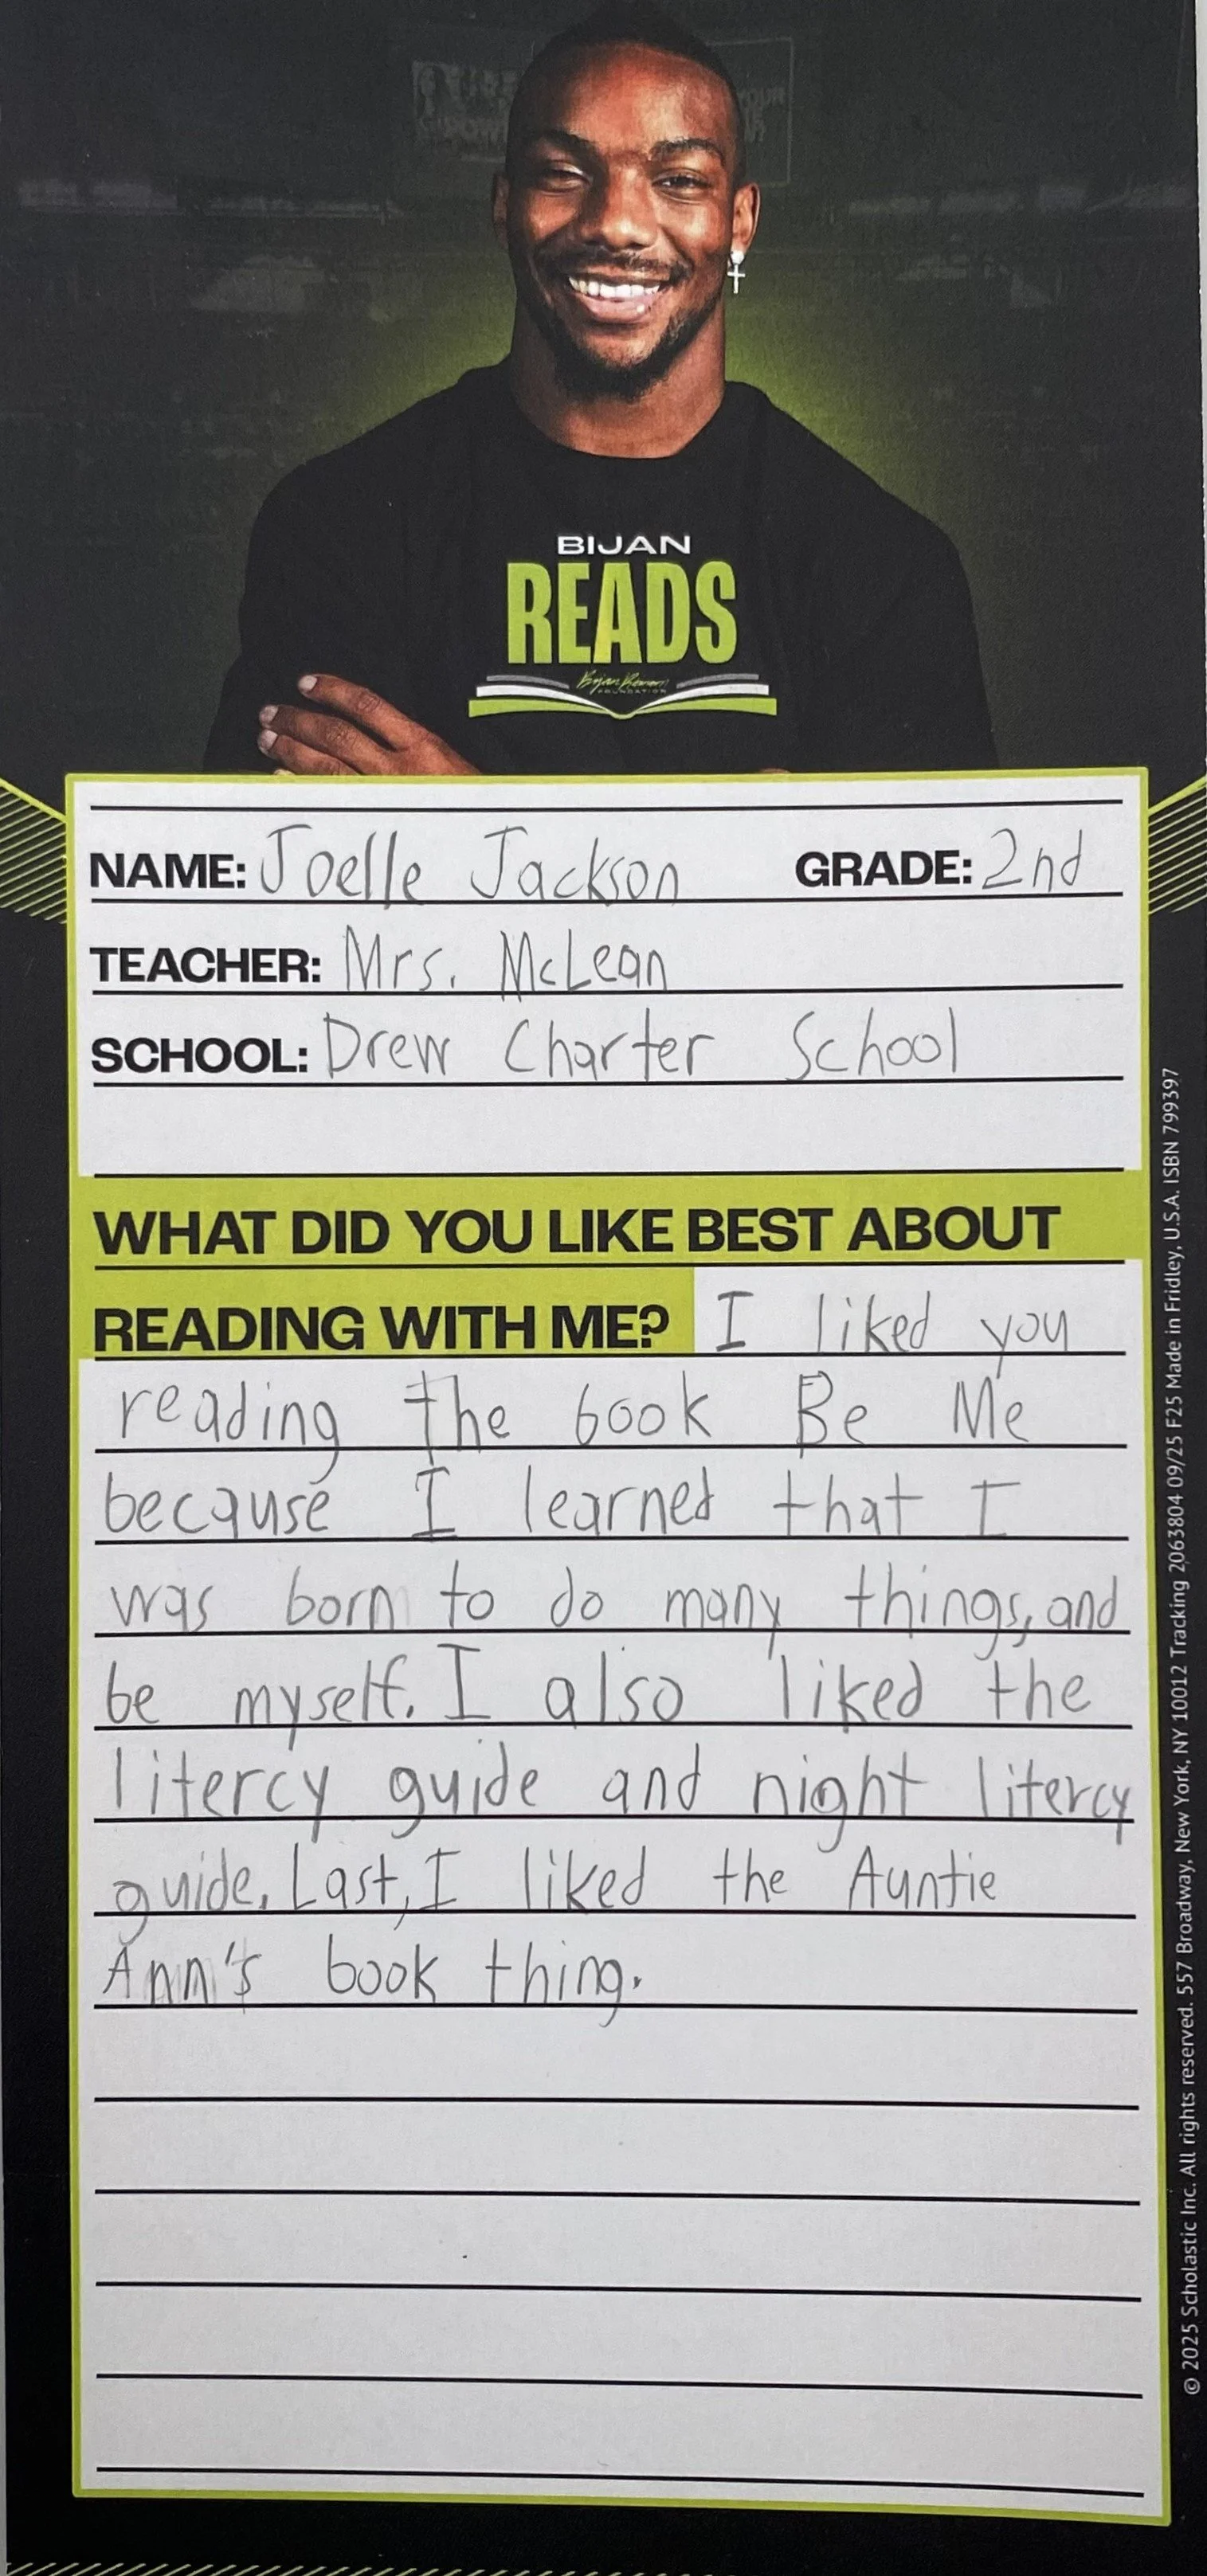 BIJAN
READS
Bijan Robinson
FOUNDATION
NAME: Joelle Jackson GRADE: 2nd
TEACHER: Mrs. McLean
SCHOOL: Drew Charter School
WHAT DID YOU LIKE BEST ABOUT
READING WITH ME? I liked you
reading the book Be Me
because I learned that I
was born to do many things, and
be myself. I also liked the
litercy guide and night litercy
guide. Last, I liked the Auntie
Ann's book thing.
© 2025 Scholastic Inc. All rights reserved. 557 Broadway, New York, NY 10012 Tracking 2063804 09/25 F25 Made in Fridley, U.S.A. ISBN 799397